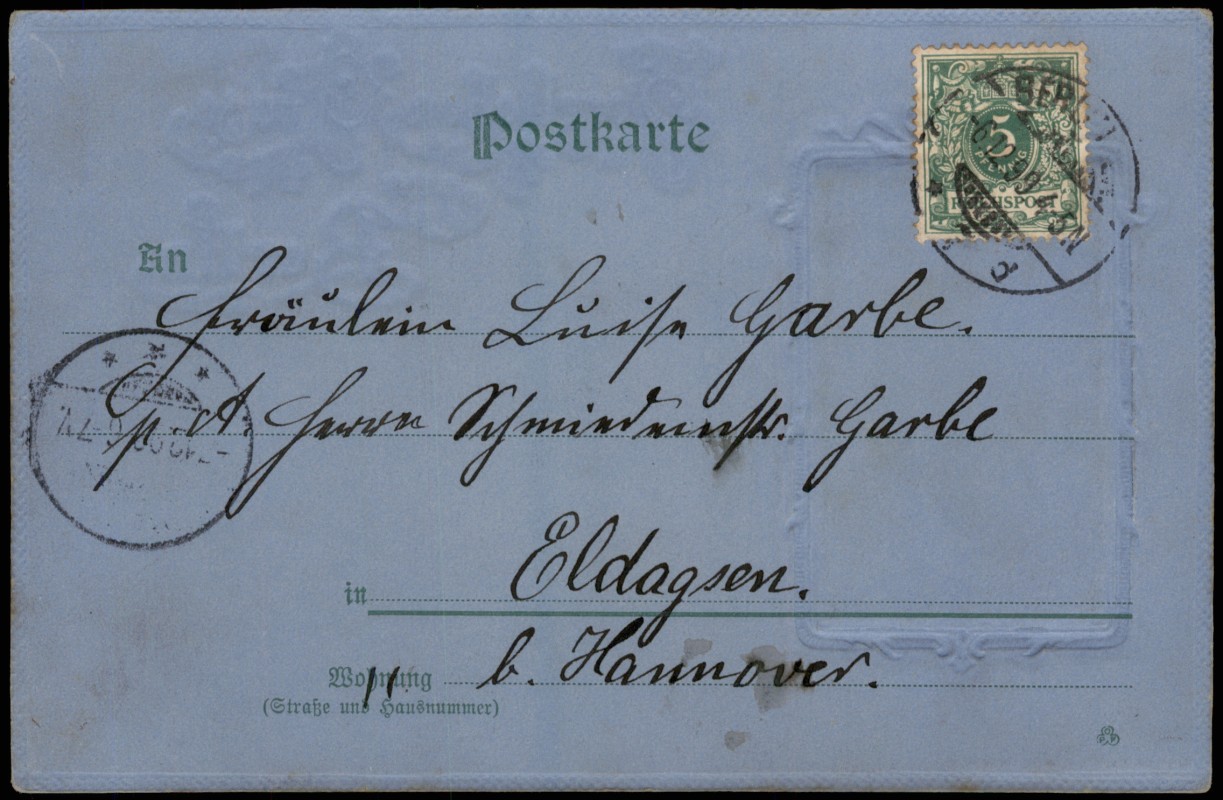 Postkarte
5
PFENNIG
REICHSPOST
BERLIN
An
Fräulein Luise Garbe.
p. A. Herrn Schmiedemstr. Garbe
in Eldagsen.
Wohnung b. Hannover.
(Straße und Hausnummer)